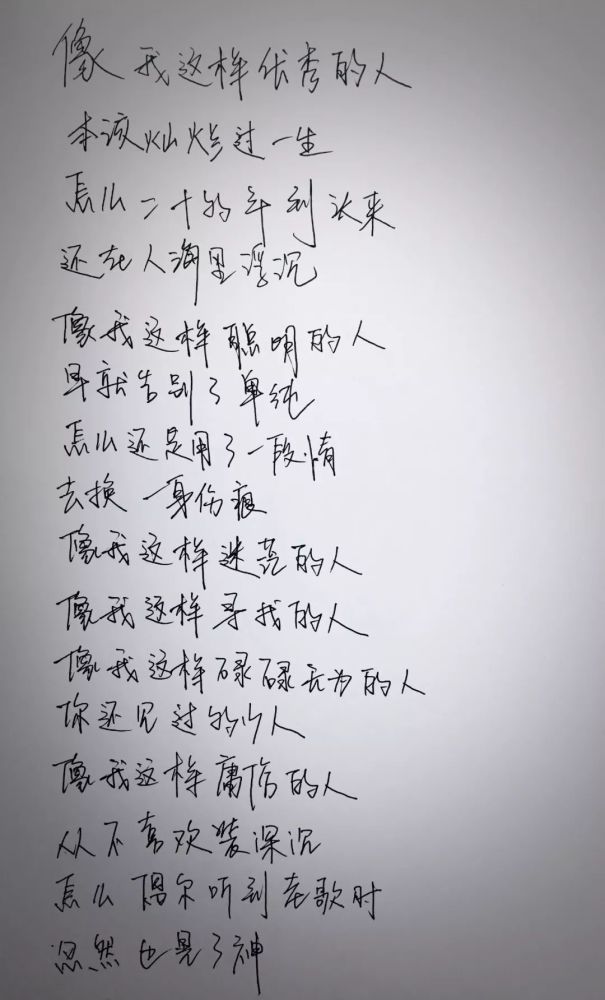 像我这样优秀的人
本该灿烂过一生
怎么二十的年到头来
还在人海里浮沉
像我这样聪明的人
早就告别了单纯
怎么还是用了一段情
去换一身伤痕
像我这样迷茫的人
像我这样寻找的人
像我这样碌碌无为的人
你还见过的少人
像我这样庸俗的人
从不喜欢装深沉
怎么偶尔听到老歌时
忽然也晃了神